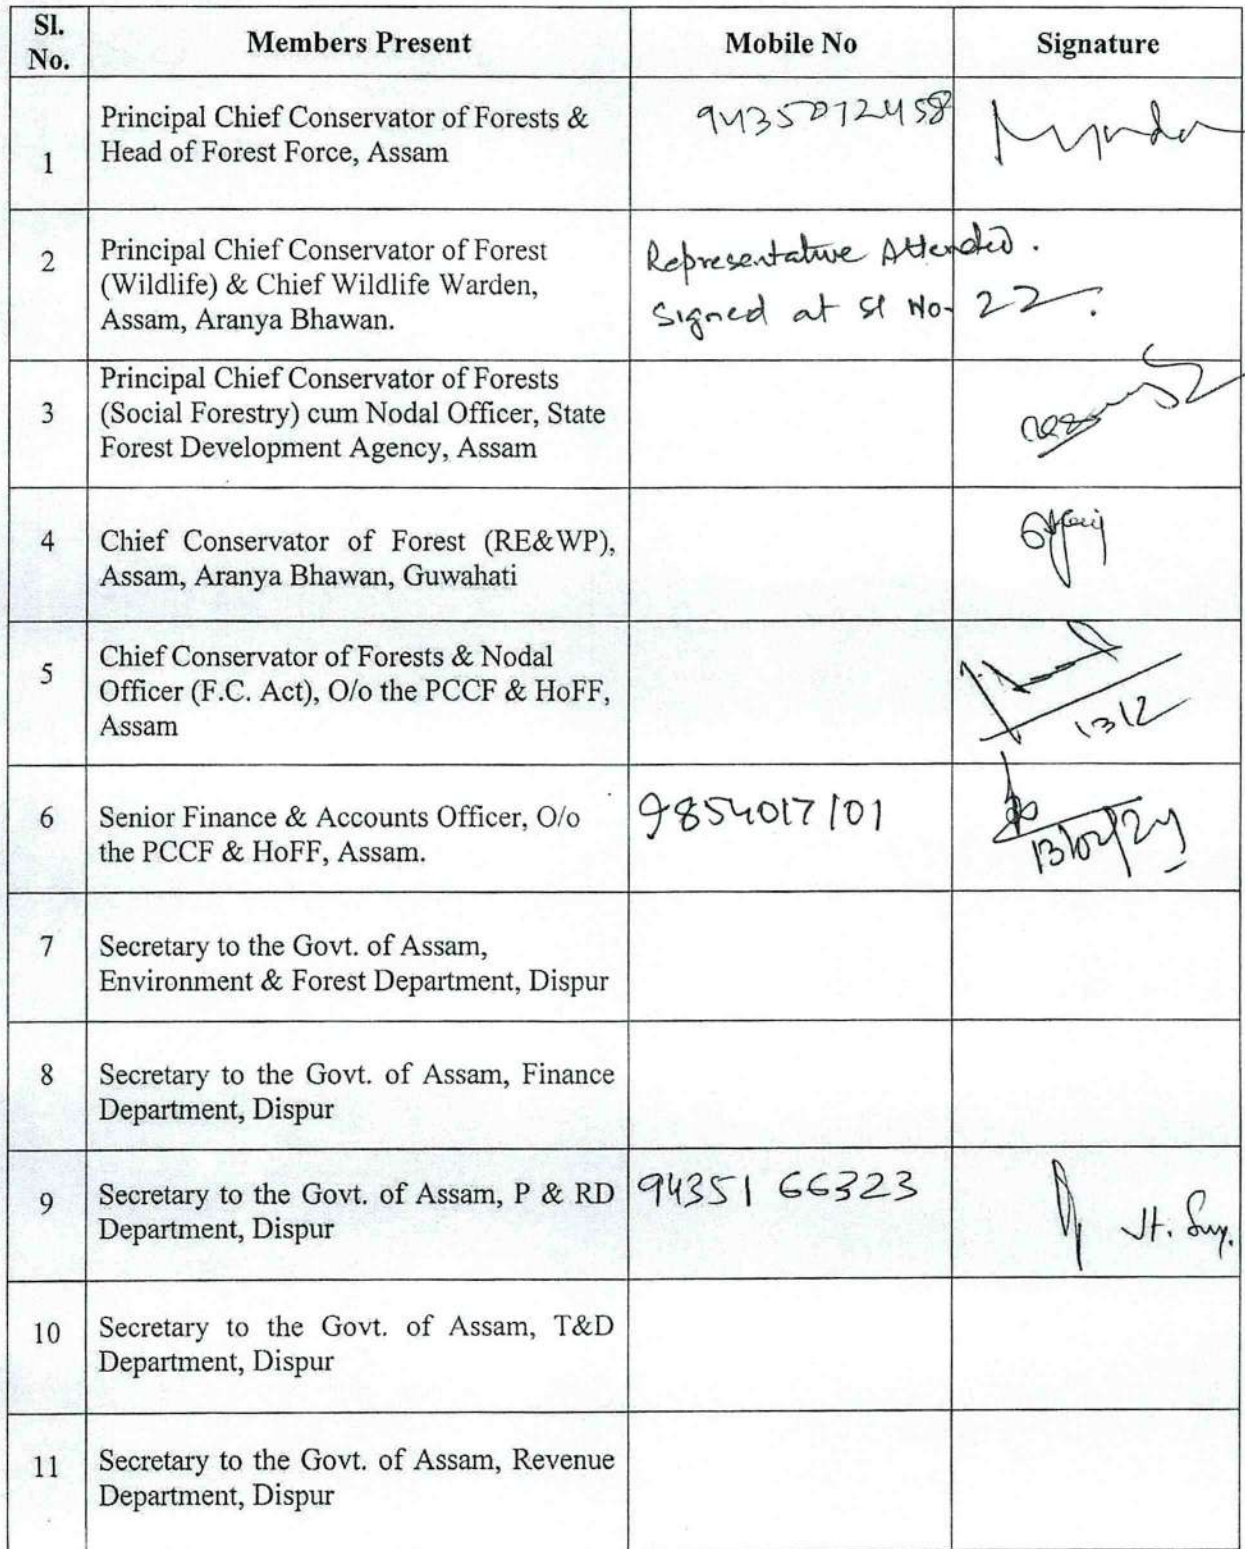 Sl. No. Members Present Mobile No Signature
1 Principal Chief Conservator of Forests & 
Head of Forest Force, Assam
2 Principal Chief Conservator of Forest
(Wildlife) & Chief Wildlife Warden,
Assam, Aranya Bhawan.
Representative Attended.
Signed at Sl No- 22.
3 Principal Chief Conservator of Forests
(Social Forestry) cum Nodal Officer, State
Forest Development Agency, Assam
4 Chief Conservator of Forest (RE&WP),
Assam, Aranya Bhawan, Guwahati
5 Chief Conservator of Forests & Nodal
Officer (F.C. Act), O/o the PCCF & HoFF,
Assam
13/2
6 Senior Finance & Accounts Officer, O/o
the PCCF & HoFF, Assam.
9854017101
13/02/24
7 Secretary to the Govt. of Assam,
Environment & Forest Department, Dispur
8 Secretary to the Govt. of Assam, Finance
Department, Dispur
9 Secretary to the Govt. of Assam, P & RD
Department, Dispur
94351 66323
Jt. Secy.
10 Secretary to the Govt. of Assam, T&D
Department, Dispur
11 Secretary to the Govt. of Assam, Revenue
Department, Dispur